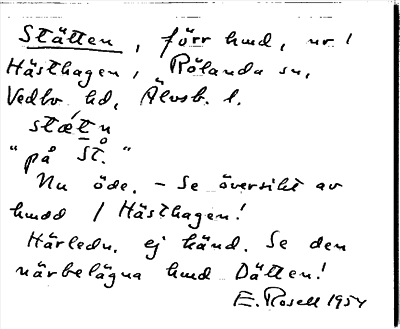 Stätten, förr hmd, nr 1
Hästhagen, Rölanda sn,
Vedbo hd, Älvsb. l.
stǽtn
"på St."
Nu öde. – Se översikt av
hmdd / Hästhagen!
Härledn. ej känd. Se den
närbelägna hmd Dätten!
E. Rosell 1954